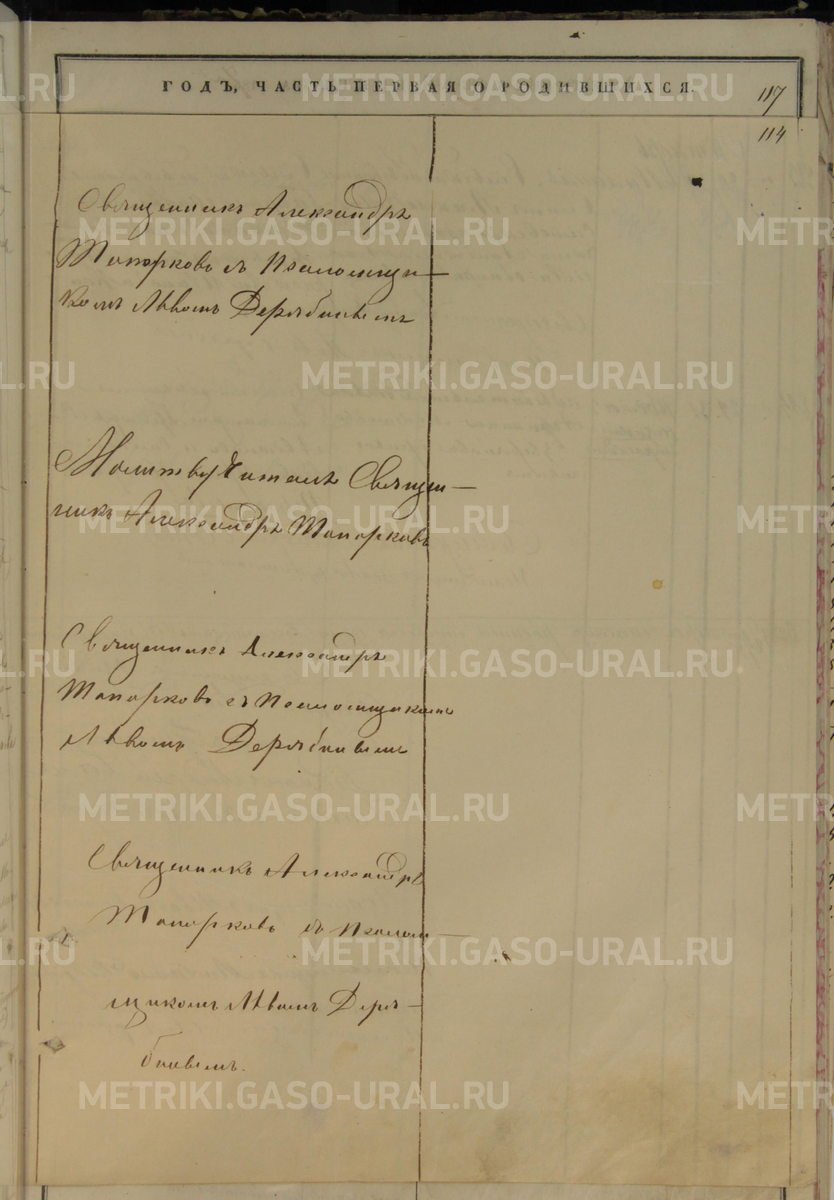 ГОДЪ, ЧАСТЬ ПЕРВАЯ О РОДИВШИХСЯ.
117
114
Священникъ Александръ
Топорковъ съ Псаломщи-
комъ Львомъ Дерябинымъ
Молитву читалъ Священ-
никъ Александръ Топорковъ
Священникъ Александръ
Топорковъ съ Псаломщикомъ
Львомъ Дерябинымъ
Священникъ Александръ
Топорковъ съ Псалом-
щикомъ Львомъ Деря-
бинымъ.
METRIKI.GASO-URAL.RU